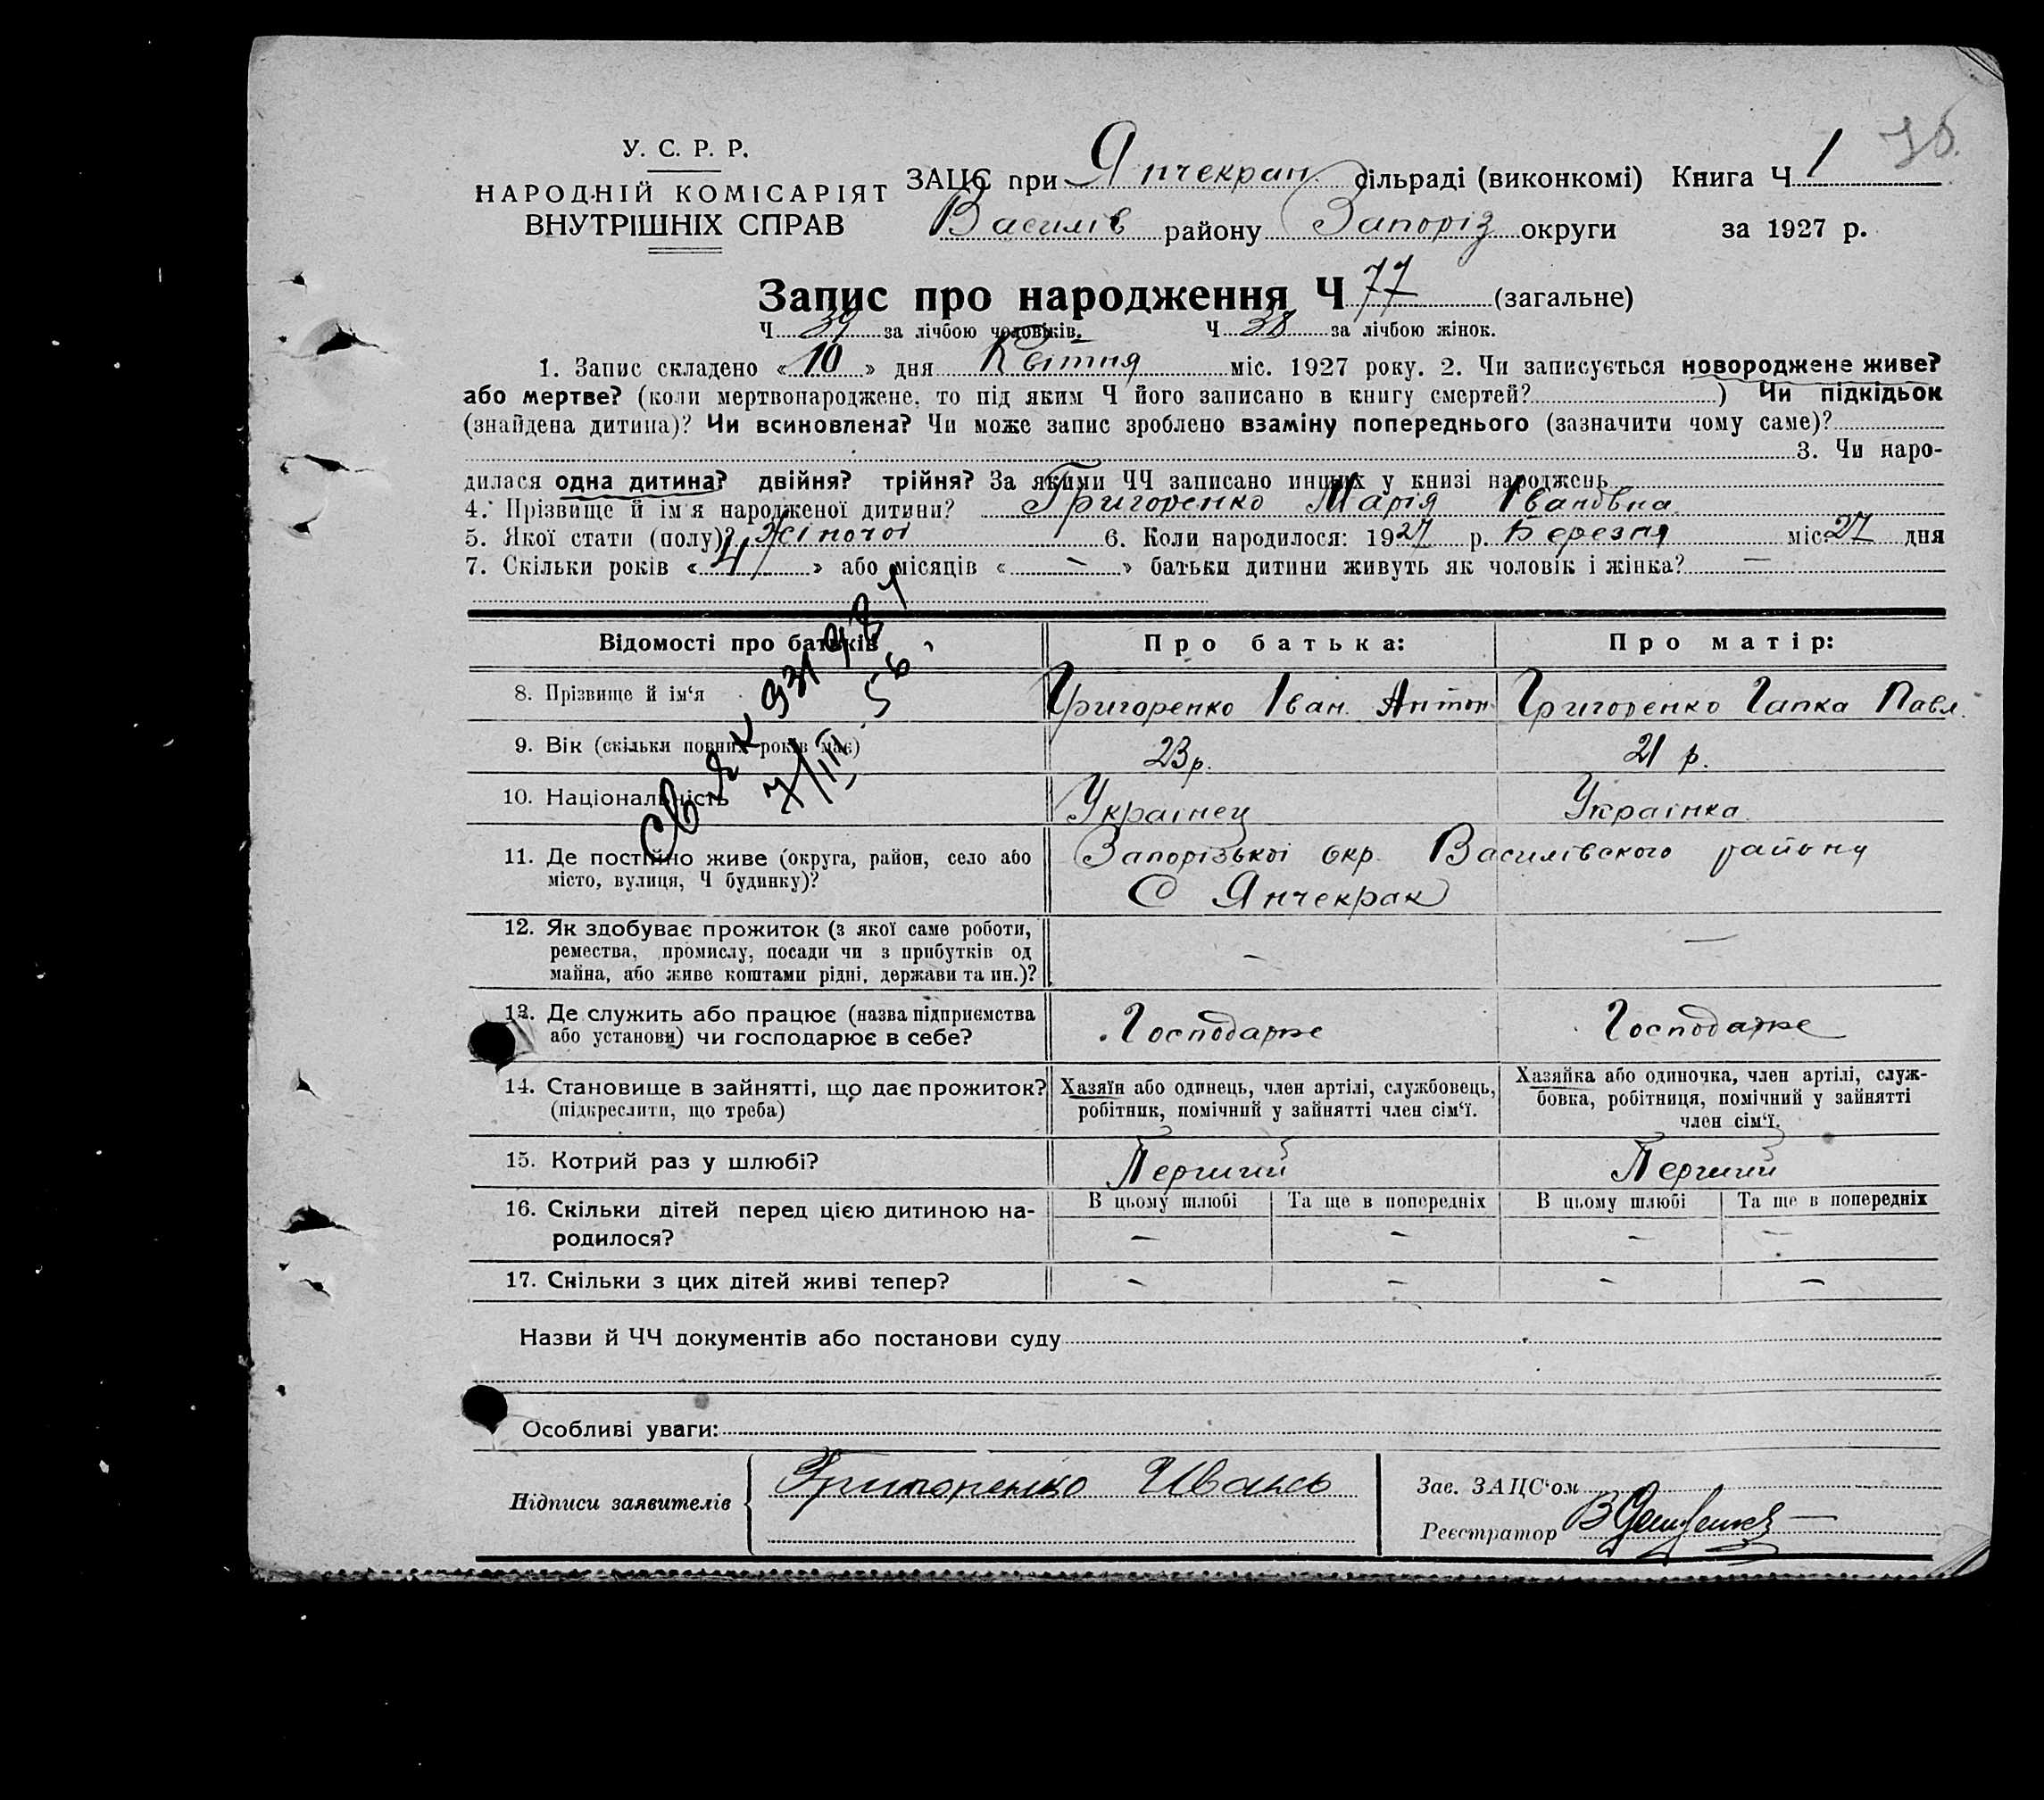 У. С. Р. Р.
НАРОДНІЙ КОМІСАРІЯТ
ВНУТРІШНІХ СПРАВ
ЗАЦС при Янчекран сільраді (виконкомі) Книга Ч 1
Василів району Запоріз округи за 1927 р.
Запис про народження Ч 77 (загальне)
Ч 39 за лічбою чоловіків. Ч 38 за лічбою жінок.
1. Запис складено « 10 » дня Квітня міс. 1927 року. 2. Чи записується новороджене живе?
або мертве? (коли мертвонароджене, то під яким Ч його записано в книгу смертей? ) Чи підкідьок
(знайдена дитина)? Чи всиновлена? Чи може запис зроблено взаміну попереднього (зазначити чому саме)?
3. Чи наро-
дилася одна дитина? двійня? трійня? За якими ЧЧ записано инших у книзі народжень
4. Прізвище й ім'я народженої дитини? Григоренко Марія Івановна
5. Якої стати (полу)? Жіночої 6. Коли народилося: 1927 р. Березня міс. 27 дня
7. Скільки років « 4 » або місяців « — » батьки дитини живуть як чоловік і жінка? —
Відомості про батьків Про батька: Про матір:
8. Прізвище й ім'я Григоренко Іван Антон Григоренко Гапка Павл.
9. Вік (скільки повних років має) 23 р. 21 р.
7/III 56
10. Національність Украінец Украінка
11. Де постійно живе (округа, район, село або Запорізькоі окр. Василівского району
місто, вулиця, Ч будинку)? С Янчекрак
12. Як здобуває прожиток (з якої саме роботи,
ремества, промислу, посади чи з прибутків од — —
майна, або живе коштами рідні, держави та ин.)?
13. Де служить або працює (назва підприємства Господарже Господарже
або установи) чи господарює в себе?
14. Становище в зайнятті, що дає прожиток? Хазяїн або одинець, член артілі, службовець, Хазяйка або одиночка, член артілі, служ-
(підкреслити, що треба) робітник, помічний у зайнятті член сім'ї. бовка, робітниця, помічний у зайнятті
член сім'ї.
15. Котрий раз у шлюбі? Перший Перший
16. Скільки дітей перед цією дитиною на- В цьому шлюбі Та ще в попередніх В цьому шлюбі Та ще в попередніх
родилося? — — — —
17. Скільки з цих дітей живі тепер? — — — —
Назви й ЧЧ документів або постанови суду
Особливі уваги:
Підписи заявителів Григоренко Ивансь
Зав. ЗАЦС'ом
Реєстратор